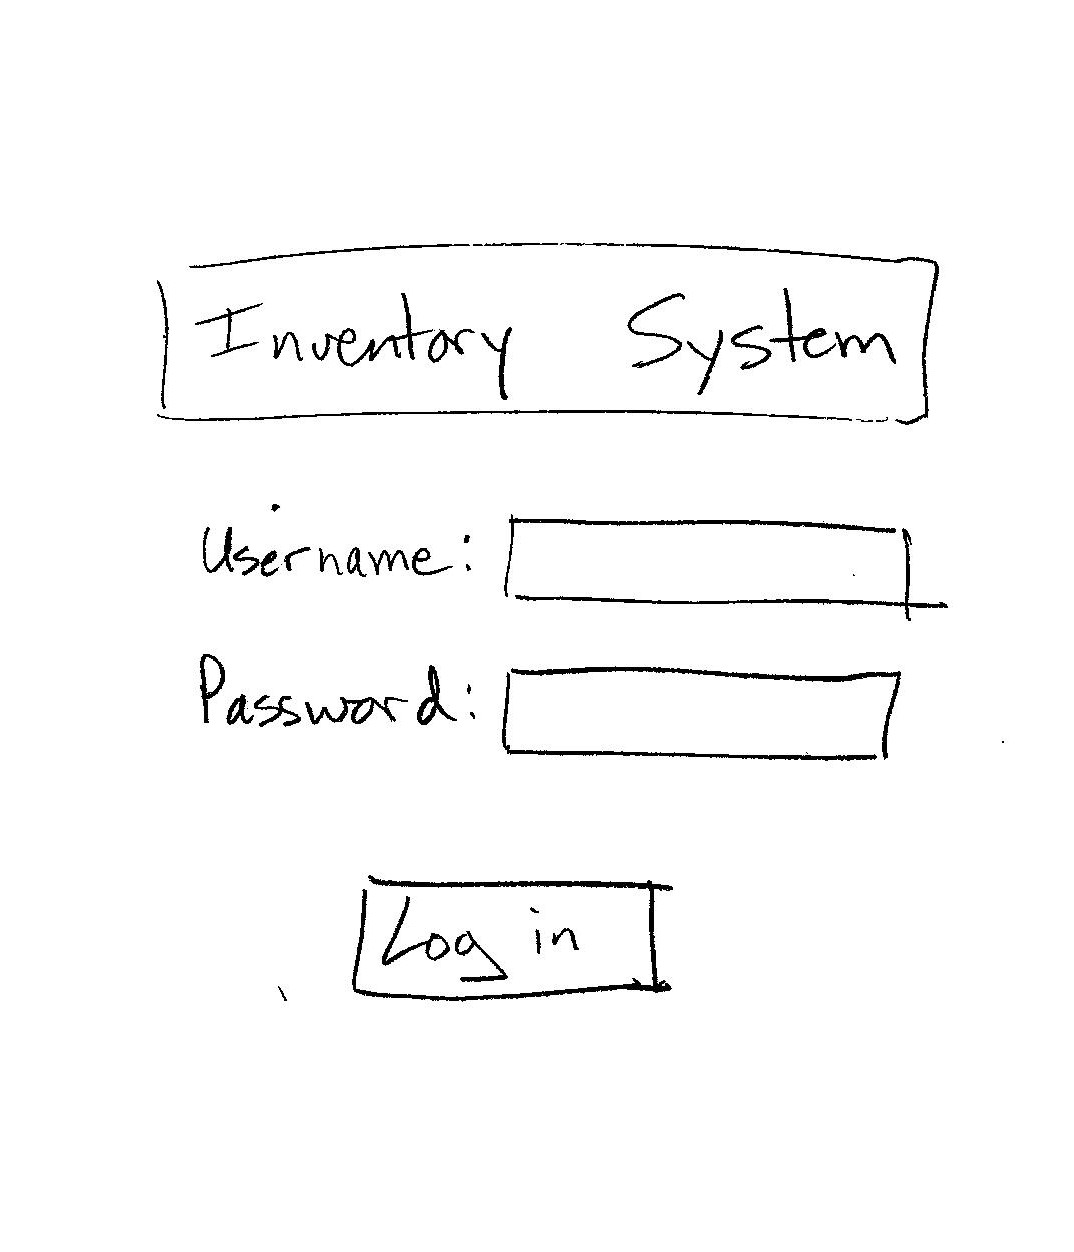 Inventory System
Username:
Password:
Log in